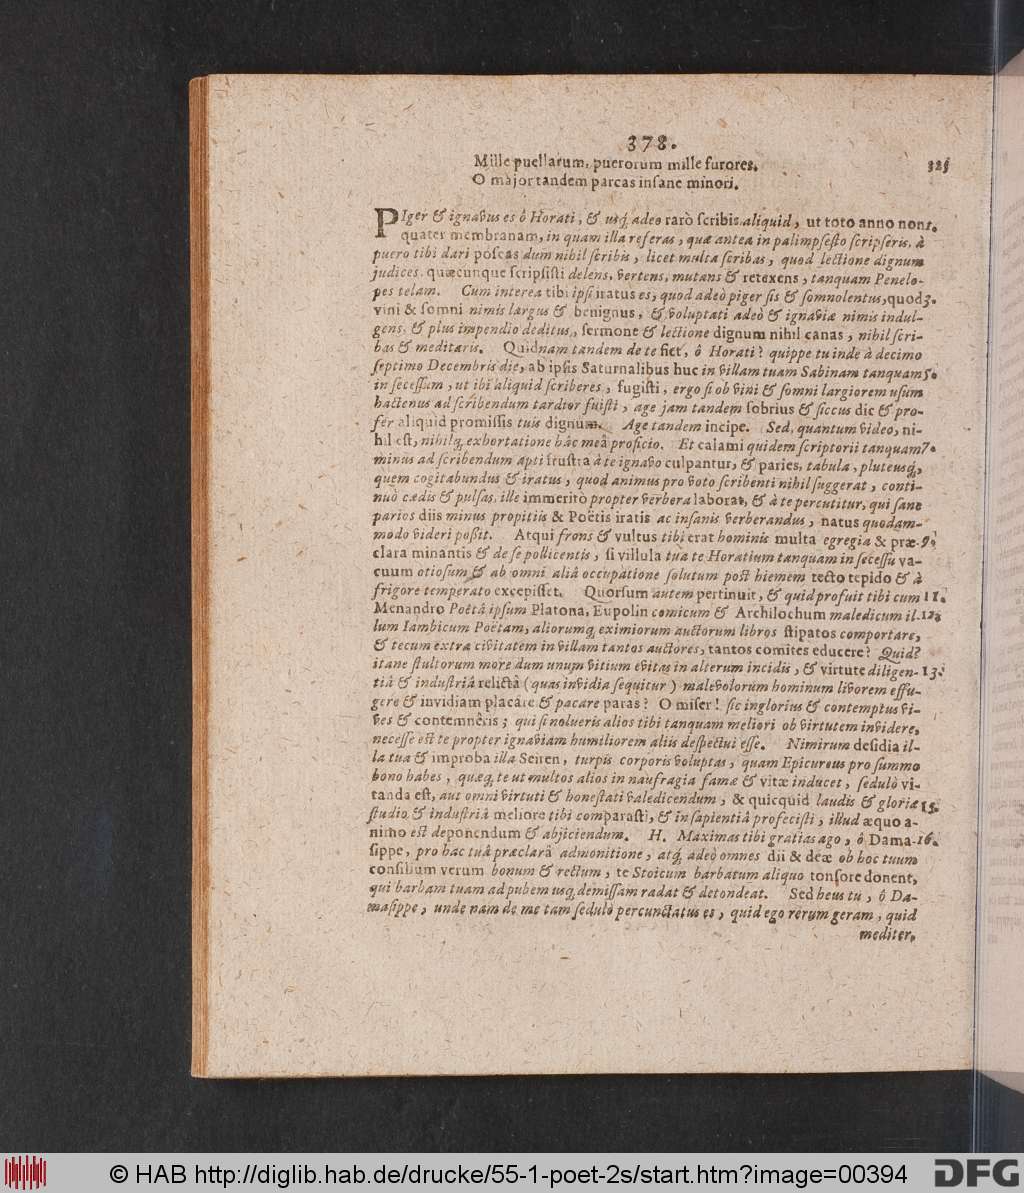 378.
Mille puellarum, puerorum mille furores. 325
O major tandem parcas insane minori.
PIger & ignavus es ô Horati, & usq; adeo rarò scribis aliquid, ut toto anno non 1.
quater membranam, in quam illa referas, quæ antea in palimpsesto scripseris, à
puero tibi dari poscas dum nihil scribis, licet multa scribas, quod lectione dignum
judices. quæcunque scripsisti delens, vertens, mutans & retexens, tanquam Penelo-
pes telam. Cum interea tibi ipsi iratus es, quod adeò piger sis & somnolentus, quod 3.
vini & somni nimis largus & benignus, & voluptati adeò & ignaviæ nimis indul-
gens, & plus impendio deditus, sermone & lectione dignum nihil canas, nihil scri-
bas & meditaris. Quidnam tandem de te fiet, ô Horati? quippe tu inde à decimo
septimo Decembris die, ab ipsis Saturnalibus huc in villam tuam Sabinam tanquam 5.
in secessum, ut ibi aliquid scriberes, fugisti, ergo si ob vini & somni largiorem usum
hactenus ad scribendum tardior fuisti, age jam tandem sobrius & siccus dic & pro-
fer aliquid promissis tuis dignum. Age tandem incipe. Sed, quantum video, ni-
hil est, nihilq; exhortatione hâc meâ proficio. Et calami quidem scriptorii tanquam 7.
minus ad scribendum apti frustra à te ignavo culpantur, & paries, tabula, pluteusq;,
quem cogitabundus & iratus, quod animus pro voto scribenti nihil suggerat, conti-
nuò cædis & pulsas, ille immeritò propter verbera laborat, & à te percutitur, qui sane
paries diis minus propitiis & Poëtis iratis ac insanis verberandus, natus quodam-
modo videri poßit. Atqui frons & vultus tibi erat hominis multa egregia & præ- 9.
clara minantis & de se pollicentis, si villula tua te Horatium tanquam in secessu va-
cuum otiosum & ab omni aliâ occupatione solutum post hiemem tecto tepido & à
frigore temperato excepisset. Quorsum autem pertinuit, & quid profuit tibi cum 11.
Menandro Poëtâ ipsum Platona, Eupolin comicum & Archilochum maledicum il- 12.
lum Iambicum Poëtam, aliorumq; eximiorum auctorum libros stipatos comportare,
& tecum extra civitatem in villam tantos auctores, tantos comites educere? Quid?
itane stultorum more dum unum vitium evitas in alterum incidis, & virtute diligen- 13.
tiâ & industriâ relictâ (quas invidia sequitur) malevolorum hominum livorem effu-
gere & invidiam placare & pacare paras? O miser! sic inglorius & contemptus vi-
ves & contemnêris; qui si nolueris alios tibi tanquam meliori ob virtutem invidere,
necesse est te propter ignaviam humiliorem aliis despectui esse. Nimirum desidia il-
la tua & improba illa Seiren, turpis corporis voluptas, quam Epicureus pro summo
bono habes, quæq; te ut multos alios in naufragia famæ & vitæ inducet, sedulò vi-
tanda est, aut omni virtuti & honestati valedicendum, & quicquid laudis & gloriæ 15.
studio & industriâ meliore tibi comparasti, & in sapientiâ profecisti, illud æquo a-
nimo est deponendum & abjiciendum. H. Maximas tibi gratias ago, ô Dama- 16.
sippe, pro hac tuâ præclarâ admonitione, atq; adeò omnes dii & deæ ob hoc tuum
consilium verum bonum & rectum, te Stoicum barbatum aliquo tonsore donent,
qui barbam tuam ad pubem usq; demissam radat & detondeat. Sed heus tu, ô Da-
masippe, unde nam de me tam sedulò percunctatus es, quid ego rerum geram, quid
mediter,
© HAB http://diglib.hab.de/drucke/55-1-poet-2s/start.htm?image=00394
DFG